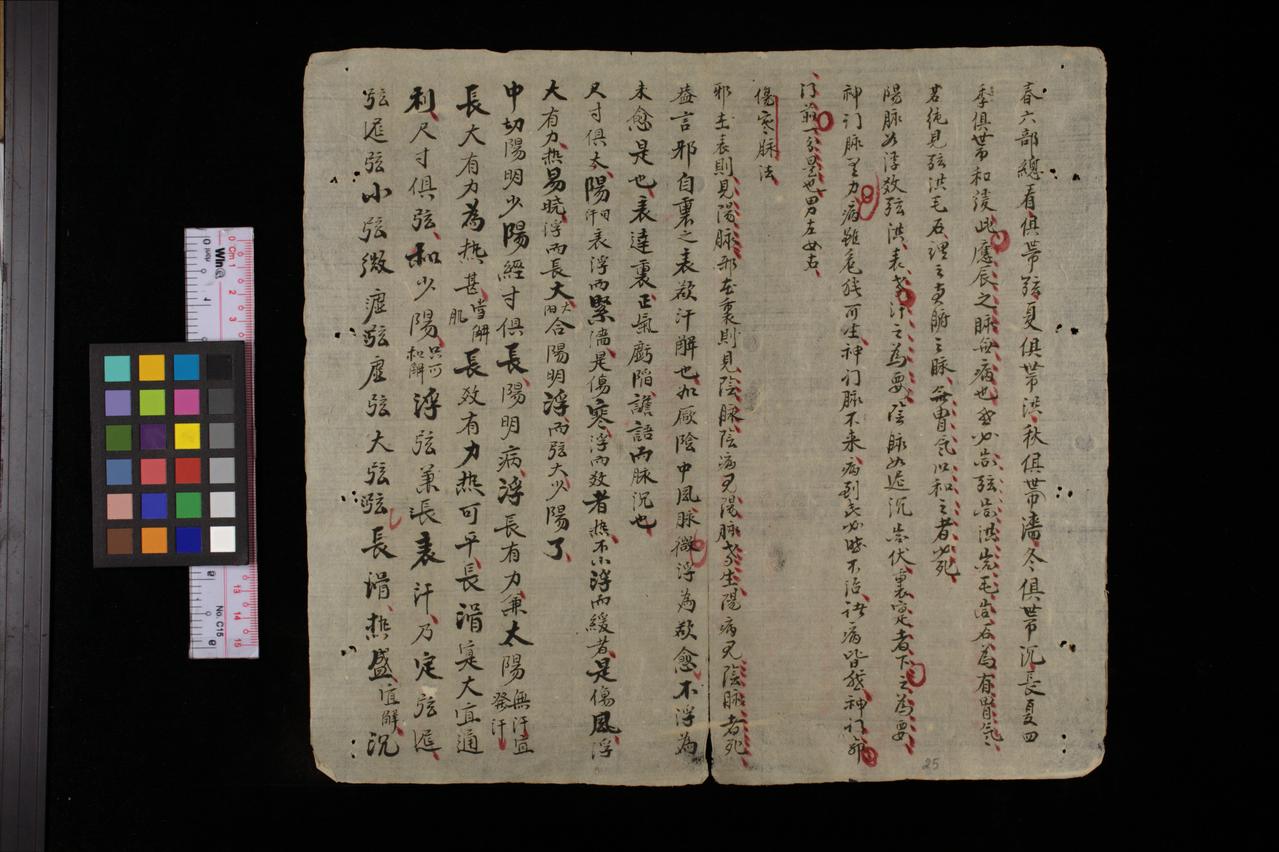 春六部總看俱帶弦夏俱帶洪秋俱帶濇冬俱帶沉長夏四
季俱帶和緩此應辰之脉無病也然必帶弦帶洪帶毛帶石為有胃氣
若純見弦洪毛石謂之真臟之脉無胃氣以和之者必死
陽脉如浮数弦洪表之汗之為要陰脉如遲沉帶伏裏寔者下之為要
神门脉里力病雖危猶可生神门脉不来病到危必時不治諸病皆然神门
门前一分是也男左女右
傷寒脉法
邪在表則見陽脉邪在裏則見陰脉陰病見陽脉者生陽病見陰脉者死
盖言邪自裏之表欲汗解也如厥陰中風脉微浮為欲愈不浮為
未愈是也表達裏正氣虧陷譫語而脉沉也
尺寸俱太陽表浮而緊濇是傷寒浮而数者热不小浮而緩者是傷風浮
大有力热易晓浮而長大合陽明浮而弦大少陽了
中切陽明少陽經寸俱長陽明病浮長有力兼太陽無汗宜發汗
長大有力為热甚當解肌長数有力热可平長滑寔大宜通
利尺寸俱弦和少陽只可和解浮弦兼長表汗乃定弦遲
弦遲弦小弦微虛弦虛弦大弦弦長滑热盛宜解沉
25
Cm 1
2
3
4
13
14
15
No. C15